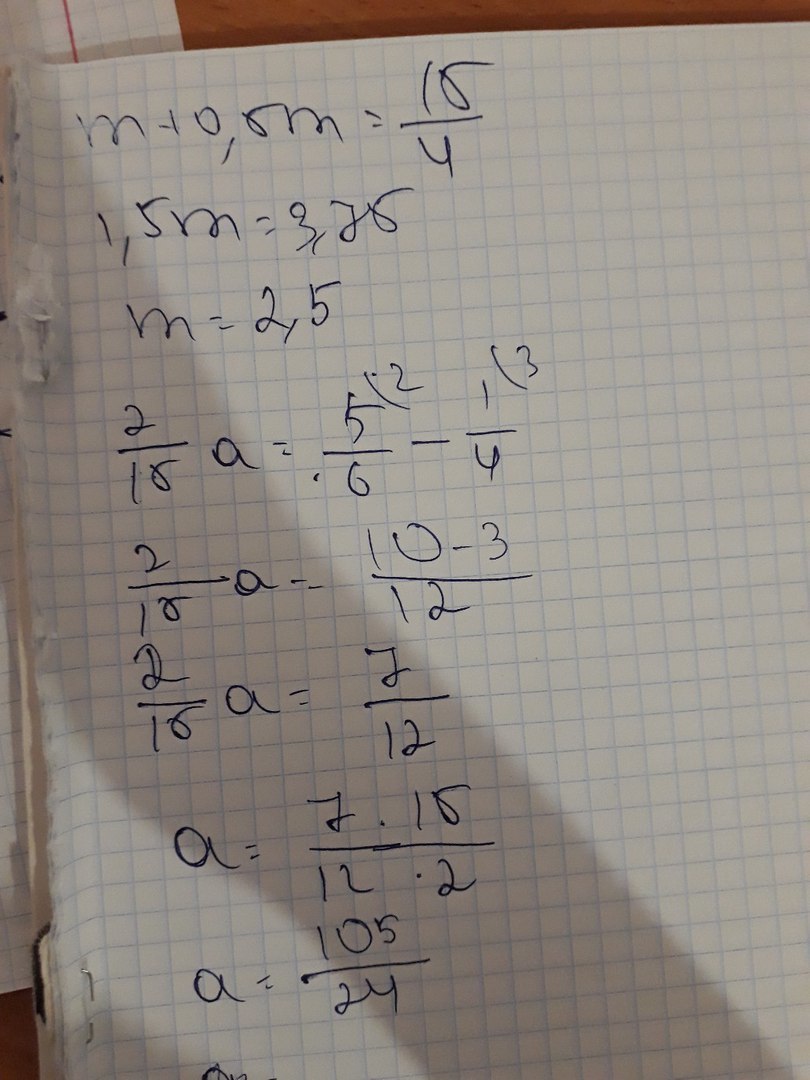 m + 0,5m = 15/4
1,5m = 3,75
m = 2,5
2/15 a = 5(2/6 - 1(3/4
2/15 a = 10-3/12
2/15 a = 7/12
a = 7 · 15/12 · 2
a = 105/24